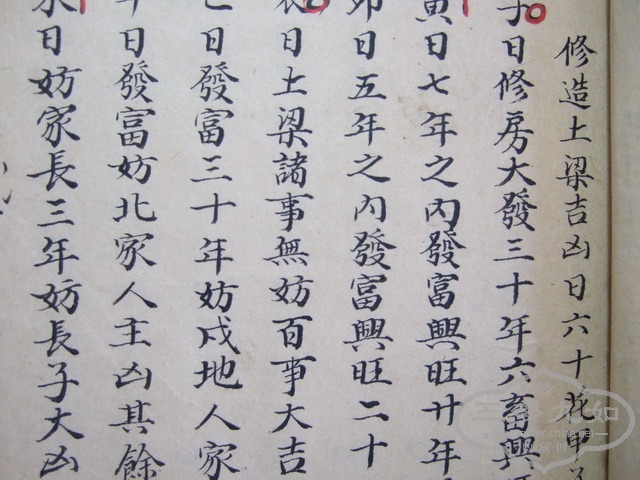 修造上梁吉凶日六十花甲子
子日修房大發三十年六畜興旺
寅日七年之內發富興旺廿年
卯日五年之內發富興旺二十
辰日上梁諸事無妨百事大吉
巳日發富三十年妨戌地人家
午日發富妨北家人主凶其餘
未日妨家長三年妨長子大凶